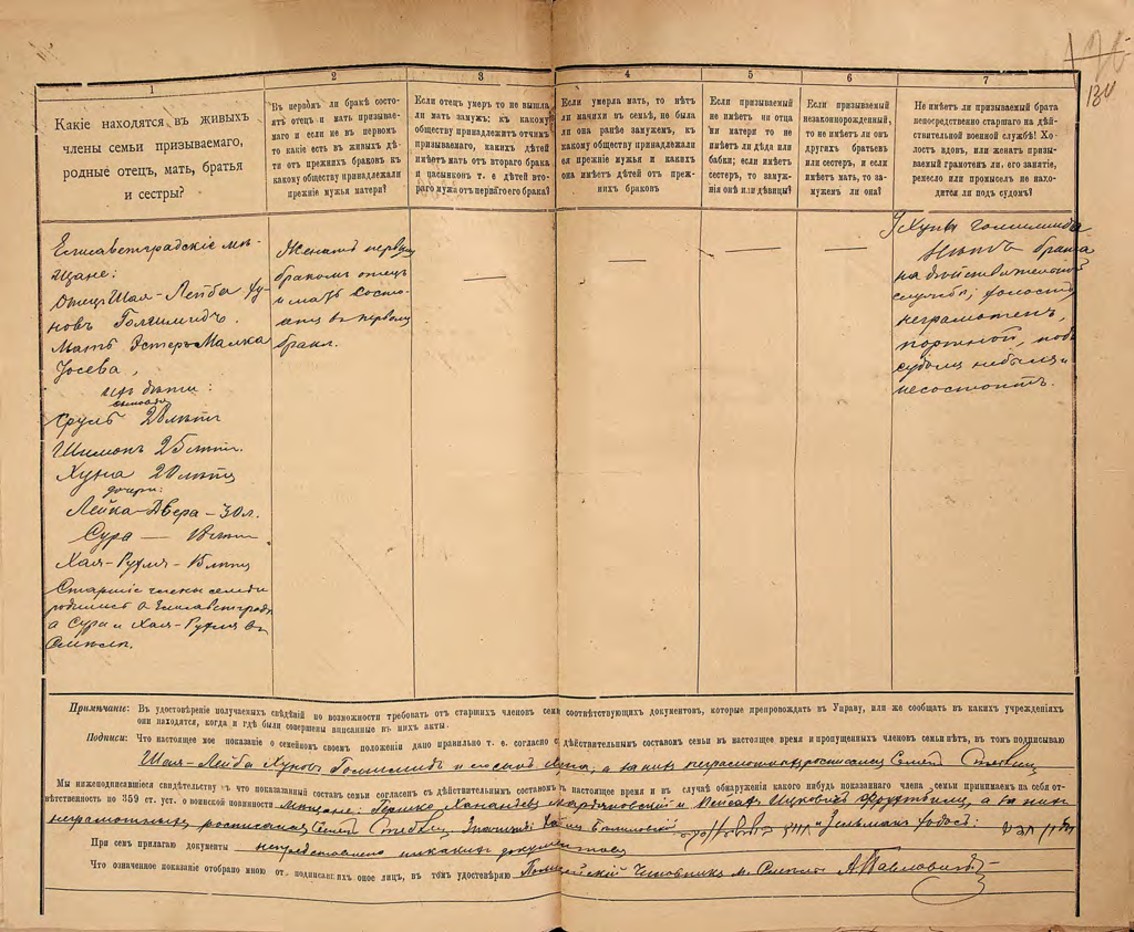 120
134
1
2
3
4
5
6
7
Какіе находятся въ живыхъ
члены семьи призываемаго,
родные отецъ, мать, братья
и сестры?
Въ первомъ ли бракѣ состо-
ятъ отецъ и мать призывае-
маго и если не въ первомъ
то какіе есть въ живыхъ дѣ-
ти отъ прежнихъ браковъ къ
какому обществу принадлежали
прежніе мужья матери?
Если отецъ умеръ то не вышла
ли мать замужъ; къ какому
обществу принадлежитъ отчимъ
призываемаго, какихъ дѣтей
имѣетъ мать отъ втораго брака
и пасынковъ т. е дѣтей вто-
раго мужа отъ перваго его брака?
Если умерла мать, то нѣтъ
ли мачихи въ семьѣ, не была
ли она ранѣе замужемъ, къ
какому обществу принадлежали
ея прежніе мужья и какихъ
она имѣетъ дѣтей отъ преж-
нихъ браковъ
Если призываемый
не имѣетъ ни отца
ни матери то не
имѣетъ ли дѣда или
бабки; если имѣетъ
сестеръ, то замуж-
нія онѣ или дѣвицы?
Если призываемый
незаконнорожденный,
то не имѣетъ ли онъ
другихъ братьевъ
или сестеръ, и если
имѣетъ мать, то за-
мужемъ ли она?
Не имѣетъ ли призываемый брата
непосредственно старшаго на дѣй-
ствительной военной службѣ! Хо-
лостъ вдовъ, или женатъ призы-
ваемый грамотенъ ли, его занятіе,
ремесло или промыселъ не нахо-
дится ли подъ судомъ?
Елисаветградскіе мѣ-
щане:
Отецъ Шая-Лейба Ху-
новъ Голшмидъ.
Мать Эстеръ Малка
Іосева,
ихъ дѣти:
сыновья
Сруль 28 лѣтъ
Шимонъ 25 лѣтъ.
Хуна 20 лѣтъ
дочери:
Лейка-Двера - 30 л.
Сура — лѣтъ
Хая-Рухля - 15 лѣтъ
Старшіе члены семьи
родились въ Елисаветградѣ
а Сура и Хая-Рухля въ
Смѣлѣ.
Женатъ первымъ
бракомъ отецъ
и мать состо-
ятъ въ первомъ
бракѣ.
У Хуны Голшмида
нѣтъ брата
на дѣйствительной
службѣ; холостъ
неграмотенъ,
портной, подъ
судомъ не былъ и
не состоитъ.
Примѣчаніе: Въ удостовѣреніе получаемыхъ свѣдѣній по возможности требовать отъ старшихъ членовъ семьи соотвѣтствующихъ документовъ, которые препровождать въ Управу, или же сообщать въ какихъ учрежденіяхъ
они находятся, когда и гдѣ были совершены вписанные въ нихъ акты.
Подписи: Что настоящее мое показаніе о семейномъ своемъ положеніи дано правильно т. е. согласно съ дѣйствительнымъ составомъ семьи въ настоящее время и пропущенныхъ членовъ семьи нѣтъ, въ томъ подписываю
Шая-Лейба Хуновъ Голшмидъ и сынъ Хуна, а за нихъ неграмотныхъ росписался Семенъ
Мы нижеподписавшіеся свидѣтельствуемъ что показанный составъ семьи согласенъ съ дѣйствительнымъ составомъ въ настоящее время и въ случаѣ обнаруженія какого нибудь показаннаго члена семьи принимаемъ на себя от-
вѣтственность по 359 ст. уст. о воинской повинности мѣщане: Гершко Мардяновскій и Ицковичъ а за нихъ
неграмотныхъ росписался Семенъ и Зельманъ
При семъ прилагаю документы непредставлено никакихъ документовъ
Что означенное показаніе отобрано мною отъ подписавшихъ оное лицъ, въ томъ удостовѣряю Полицейскій Чиновникъ м. Смѣлы А Павловичъ